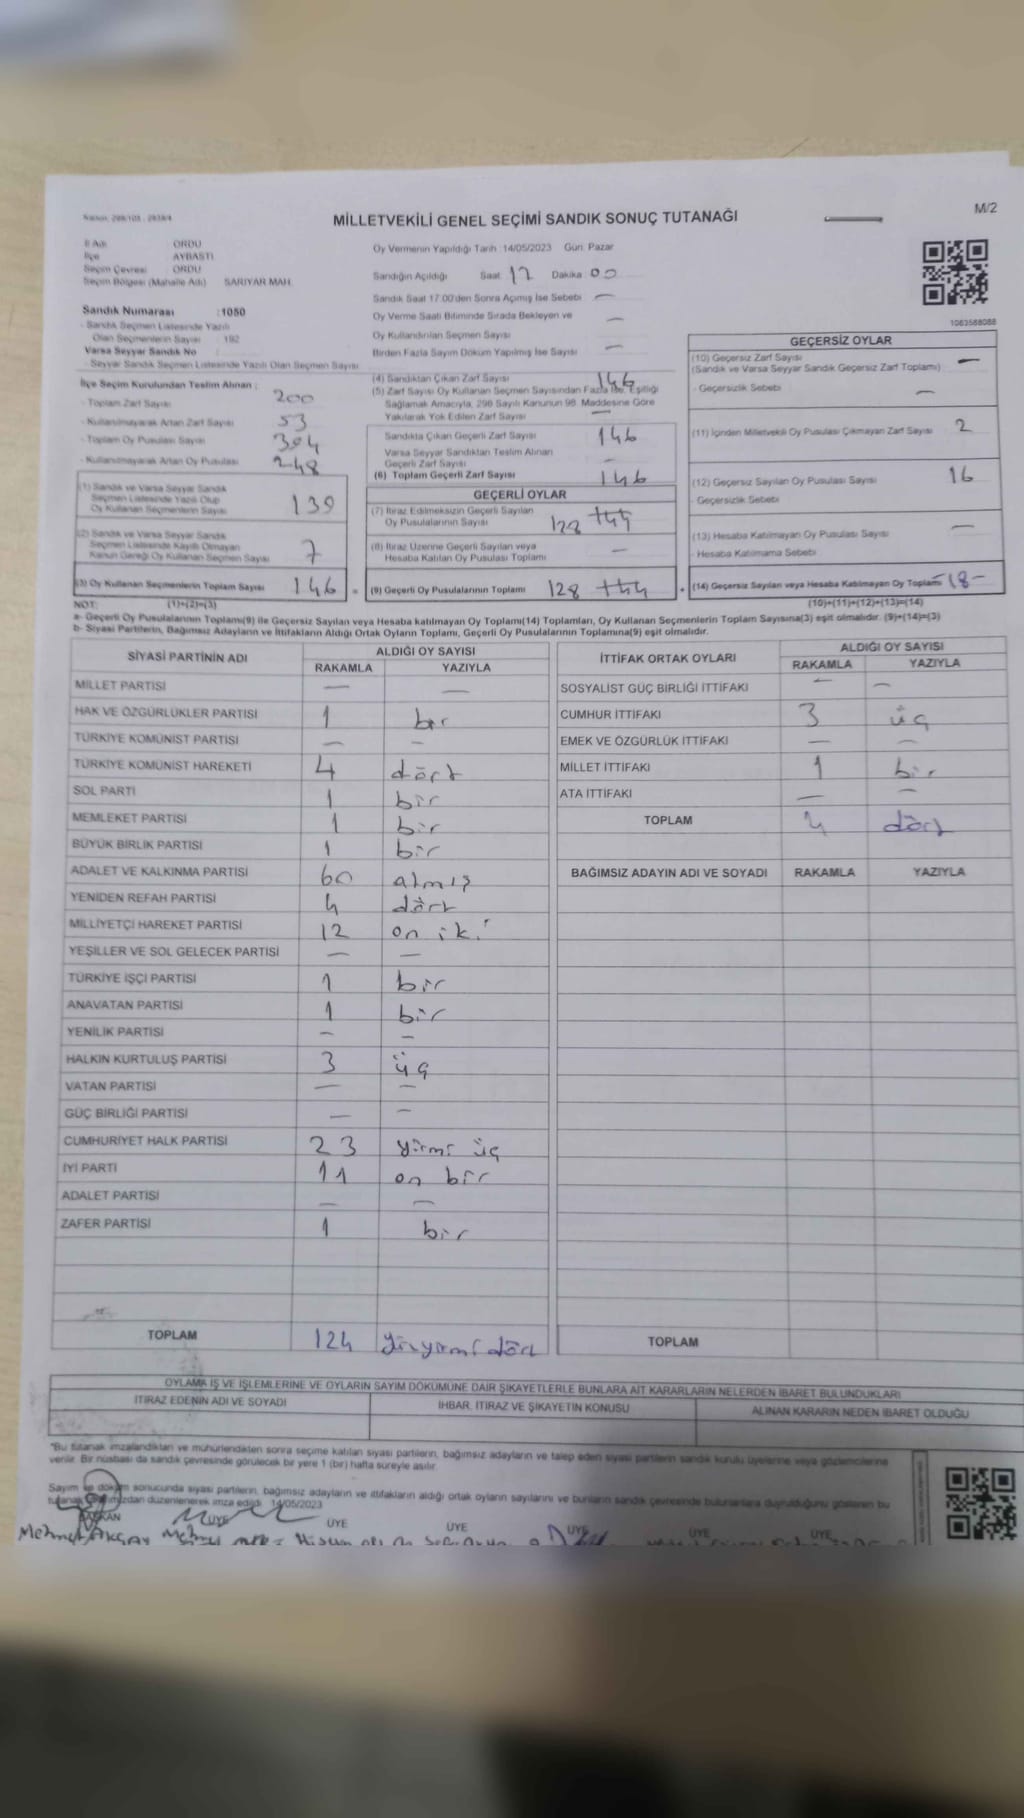 MİLLETVEKİLİ GENEL SEÇİMİ SANDIK SONUÇ TUTANAĞI
M/2
İl Adı ORDU
İlçe AYBASTI
Seçim Çevresi ORDU
Seçim Bölgesi (Mahalle Adı) SARIYAR MAH.
Sandık Numarası :1050
- Sandık Seçmen Listesinde Yazılı
Olan Seçmenlerin Sayısı : 192
Varsa Seyyar Sandık No :
- Seyyar Sandık Seçmen Listesinde Yazılı Olan Seçmen Sayısı
İlçe Seçim Kurulundan Teslim Alınan :
- Toplam Zarf Sayısı 200
- Kullanılmayarak Artan Zarf Sayısı 53
- Toplam Oy Pusulası Sayısı
- Kullanılmayarak Artan Oy Pusulası 248
(1) Sandık ve Varsa Seyyar Sandık
Seçmen Listesinde Yazılı Olup
Oy Kullanan Seçmenlerin Sayısı 139
(2) Sandık ve Varsa Seyyar Sandık
Seçmen Listesinde Kayıtlı Olmayan
Kanun Gereği Oy Kullanan Seçmen Sayısı 7
(3) Oy Kullanan Seçmenlerin Toplam Sayısı 146
(1)+(2)=(3)
Oy Vermenin Yapıldığı Tarih :14/05/2023 Gün: Pazar
Sandığın Açıldığı Saat 17 Dakika 00
Sandık Saat 17.00'den Sonra Açılmış İse Sebebi —
Oy Verme Saati Bitiminde Sırada Bekleyen ve
Oy Kullandırılan Seçmen Sayısı —
Birden Fazla Sayım Döküm Yapılmış İse Sayısı —
(4) Sandıktan Çıkan Zarf Sayısı 146
(5) Zarf Sayısı Oy Kullanan Seçmen Sayısından Fazla İse, Eşitliği
Sağlamak Amacıyla, 298 Sayılı Kanunun 98. Maddesine Göre
Yakılarak Yok Edilen Zarf Sayısı —
Sandıkta Çıkan Geçerli Zarf Sayısı 146
Varsa Seyyar Sandıktan Teslim Alınan
Geçerli Zarf Sayısı —
(6) Toplam Geçerli Zarf Sayısı 146
GEÇERLİ OYLAR
(7) İtiraz Edilmeksizin Geçerli Sayılan
Oy Pusulalarının Sayısı 128
(8) İtiraz Üzerine Geçerli Sayılan veya
Hesaba Katılan Oy Pusulası Toplamı —
(9) Geçerli Oy Pusulalarının Toplamı 128
1063588088
GEÇERSİZ OYLAR
(10) Geçersiz Zarf Sayısı —
(Sandık ve Varsa Seyyar Sandık Geçersiz Zarf Toplamı)
- Geçersizlik Sebebi —
(11) İçinden Milletvekili Oy Pusulası Çıkmayan Zarf Sayısı 2
(12) Geçersiz Sayılan Oy Pusulası Sayısı 16
- Geçersizlik Sebebi
(13) Hesaba Katılmayan Oy Pusulası Sayısı —
- Hesaba Katılmama Sebebi
(14) Geçersiz Sayılan veya Hesaba Katılmayan Oy Toplamı -18-
(10)+(11)+(12)+(13)=(14)
NOT:
a- Geçerli Oy Pusulalarının Toplamı(9) ile Geçersiz Sayılan veya Hesaba katılmayan Oy Toplamı(14) Toplamları, Oy Kullanan Seçmenlerin Toplam Sayısına(3) eşit olmalıdır. (9)+(14)=(3)
b- Siyasi Partilerin, Bağımsız Adayların ve İttifakların Aldığı Ortak Oyların Toplamı, Geçerli Oy Pusulalarının Toplamına(9) eşit olmalıdır.
SİYASİ PARTİNİN ADI ALDIĞI OY SAYISI
RAKAMLA YAZIYLA
MİLLET PARTİSİ — —
HAK VE ÖZGÜRLÜKLER PARTİSİ 1 bir
TÜRKİYE KOMÜNİST PARTİSİ — —
TÜRKİYE KOMÜNİST HAREKETİ 4 dört
SOL PARTİ 1 bir
MEMLEKET PARTİSİ 1 bir
BÜYÜK BİRLİK PARTİSİ 1 bir
ADALET VE KALKINMA PARTİSİ 60 atmış
YENİDEN REFAH PARTİSİ 4 dört
MİLLİYETÇİ HAREKET PARTİSİ 12 on iki
YEŞİLLER VE SOL GELECEK PARTİSİ — —
TÜRKİYE İŞÇİ PARTİSİ 1 bir
ANAVATAN PARTİSİ 1 bir
YENİLİK PARTİSİ — —
HALKIN KURTULUŞ PARTİSİ 3 üç
VATAN PARTİSİ — —
GÜÇ BİRLİĞİ PARTİSİ — —
CUMHURİYET HALK PARTİSİ 23 yirmi üç
İYİ PARTİ 11 on bir
ADALET PARTİSİ — —
ZAFER PARTİSİ 1 bir
TOPLAM 124
İTTİFAK ORTAK OYLARI ALDIĞI OY SAYISI
RAKAMLA YAZIYLA
SOSYALİST GÜÇ BİRLİĞİ İTTİFAKI — —
CUMHUR İTTİFAKI 3 üç
EMEK VE ÖZGÜRLÜK İTTİFAKI — —
MİLLET İTTİFAKI 1 bir
ATA İTTİFAKI — —
TOPLAM 4 dört
BAĞIMSIZ ADAYIN ADI VE SOYADI RAKAMLA YAZIYLA
TOPLAM
OYLAMA İŞ VE İŞLEMLERİNE VE OYLARIN SAYIM DÖKÜMÜNE DAİR ŞİKAYETLERLE BUNLARA AİT KARARLARIN NELERDEN İBARET BULUNDUKLARI
İTİRAZ EDENİN ADI VE SOYADI İHBAR, İTİRAZ VE ŞİKAYETİN KONUSU ALINAN KARARIN NEDEN İBARET OLDUĞU
"Bu tutanak imzalandıktan ve mühürlendikten sonra seçime katılan siyasi partilerin, bağımsız adayların ve talep eden siyasi partilerin sandık kurulu üyelerine veya gözlemcilerine
verilir. Bir nüshası da sandık çevresinde görülecek bir yere 1 (bir) hafta süreyle asılır.
Sayım ve döküm sonucunda siyasi partilerin, bağımsız adayların ve ittifakların aldığı ortak oyların sayılarını ve bunların sandık çevresinde bulunanlara duyrulduğunu gösteren bu
tutanak tarafımızdan düzenlenerek imza edildi. 14/05/2023
BAŞKAN ÜYE ÜYE ÜYE ÜYE ÜYE ÜYE
Mehmet Akçay